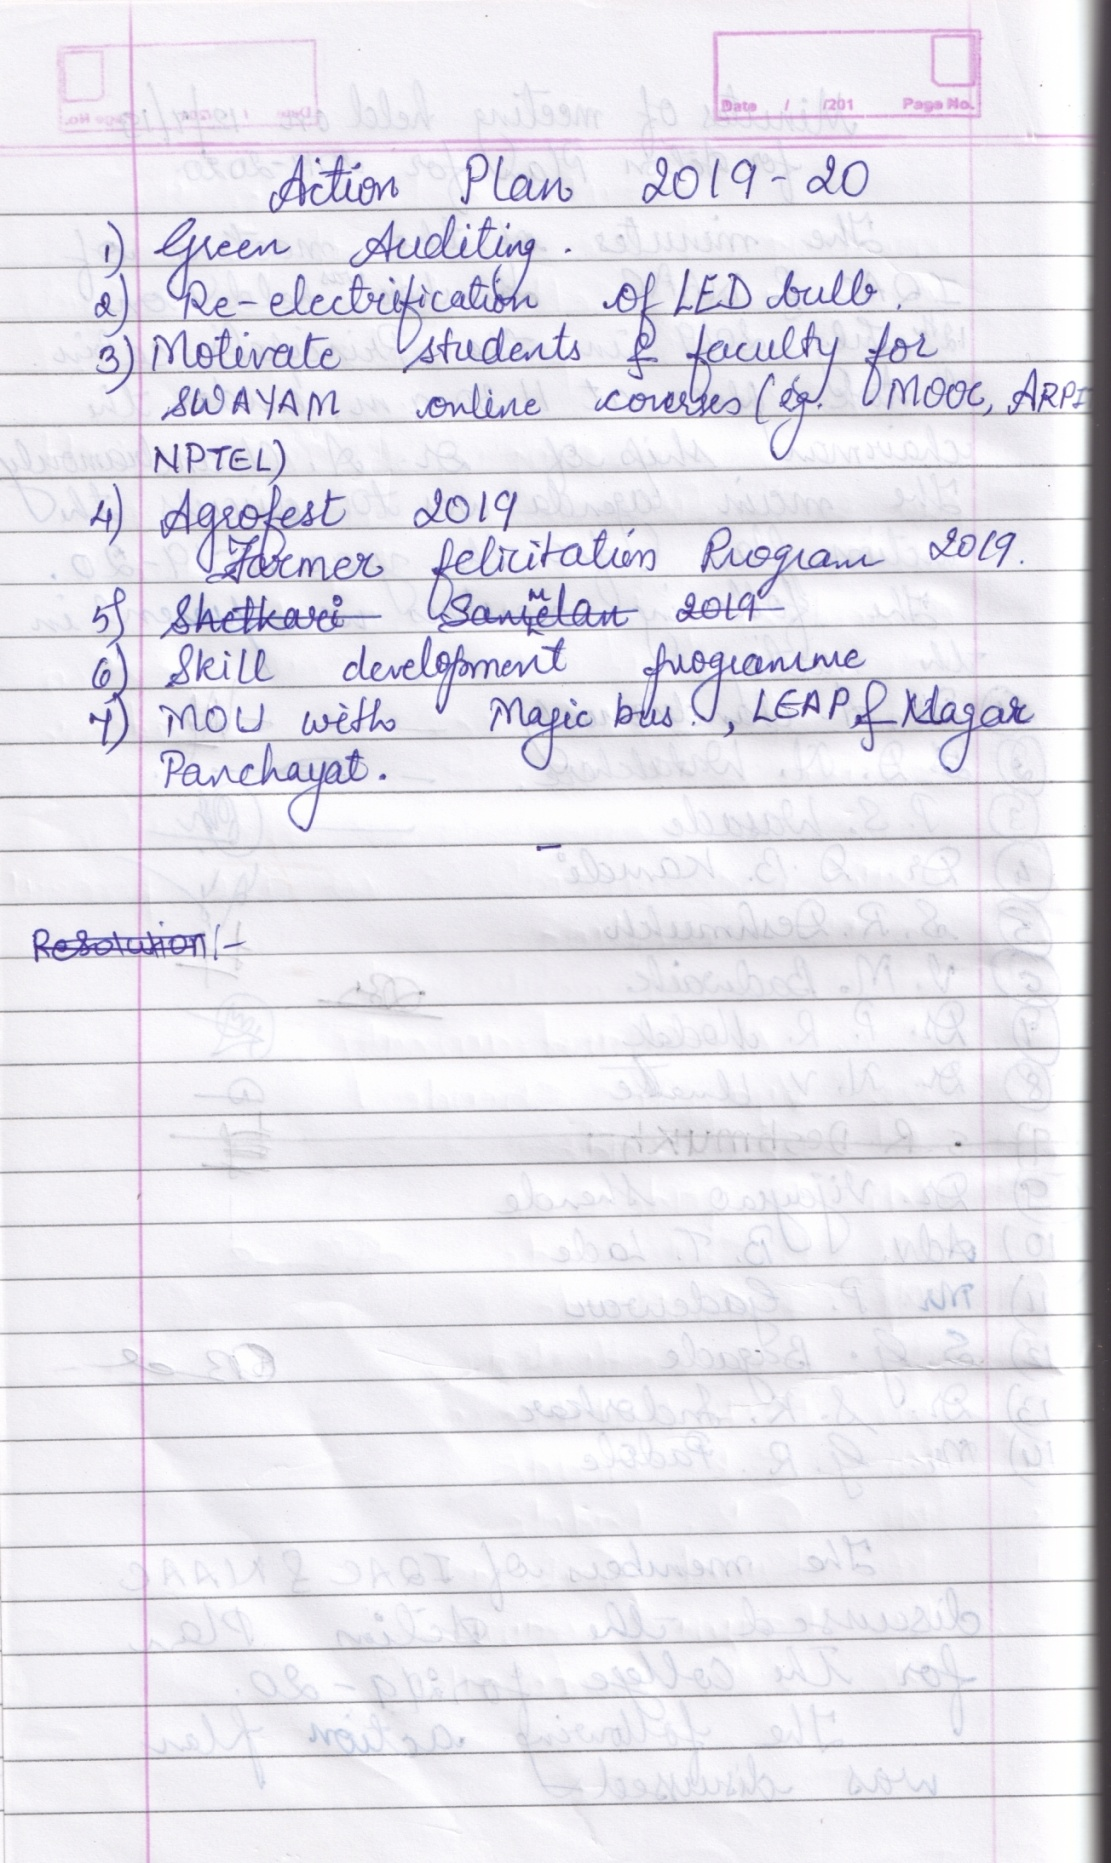 Date / /201 Page No.
Action Plan 2019-20
1) Green Auditing.
2) Re-electrification of LED bulb.
3) Motivate students & faculty for
SWAYAM online courses (eg. MOOC, ARPI
NPTEL)
4) Agrofest 2019
Farmer felicitation Program 2019.
5) Shetkari 2019
6) Skill development programme
7) MOU with Magic bus., LEAP & Nagar
Panchayat.
-
Resolution/-